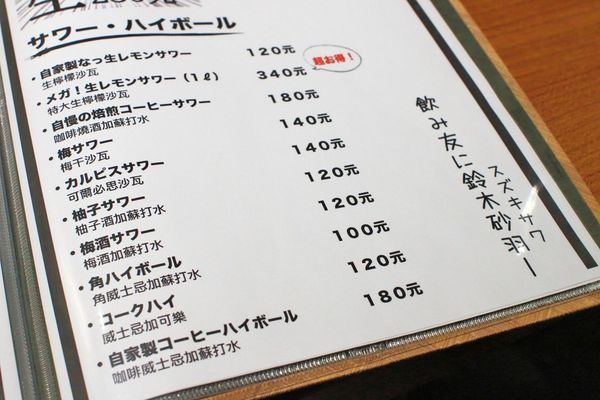 サワー・ハイボール
・自家製なっ生レモンサワー 120元
生檸檬沙瓦
・メガ！生レモンサワー（1ℓ） 340元 超お得！
特大生檸檬沙瓦
・自慢の焙煎コーヒーサワー 180元
咖啡燒酒加蘇打水
・梅サワー 140元
梅干沙瓦
・カルピスサワー 140元
可爾必思沙瓦
・柚子サワー 120元
柚子酒加蘇打水
・梅酒サワー 120元
梅酒加蘇打水
・角ハイボール 100元
角威士忌加蘇打水
・コークハイ 120元
威士忌加可樂
・自家製コーヒーハイボール 180元
咖啡威士忌加蘇打水
スズキサワー
飲み友に鈴木砂羽ー